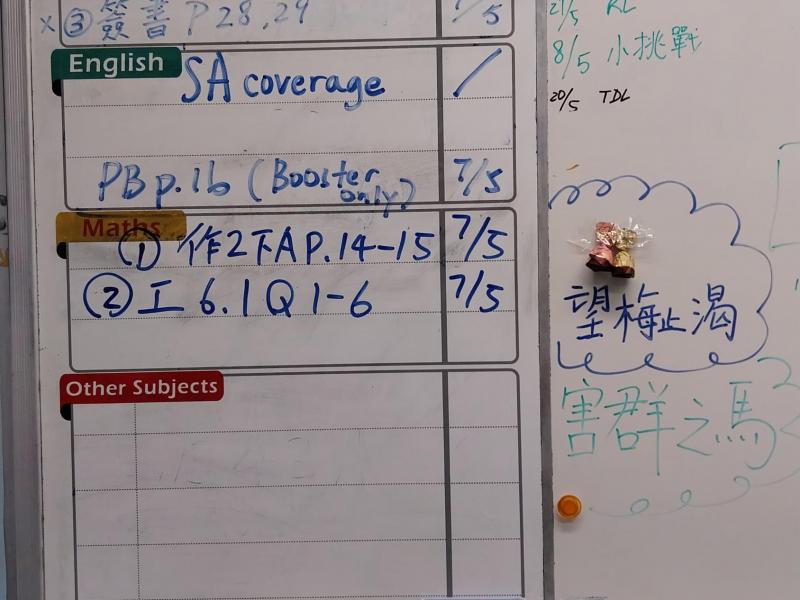 x ③ 簽書 P 28,29 7/5
English
SA coverage /
PB p.16 (Booster only) 7/5
Maths
① 作2下A P.14-15 7/5
② 工 6.1 Q 1-6 7/5
Other Subjects
21/5
8/5 小挑戰
20/5 TDL
望梅止渴
害群之馬